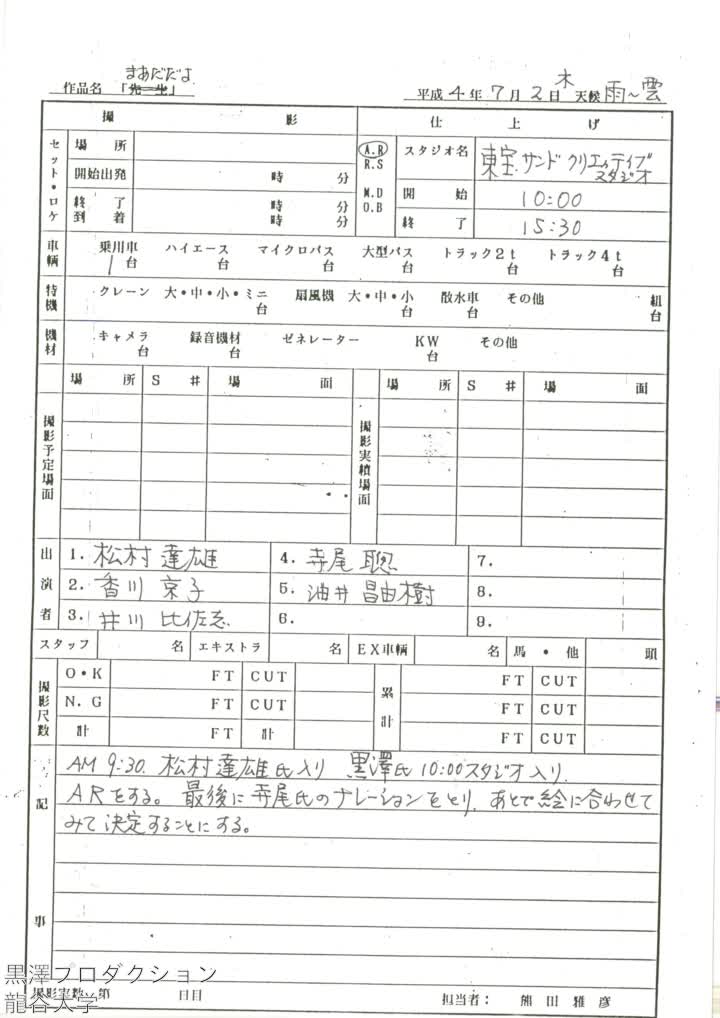 まあだだよ
作品名 「先生」 平成4年7月2日 木 天候 雨〜雲
撮 影 仕 上 げ
セット・ロケ 場 所
開始出発 時 分
終 了 時 分
到 着 時 分
A.R
R.S
M.D
O.B
スタジオ名 東宝サンドクリエイティブ
スタジオ
開 始 10:00
終 了 15:30
車輌 乗用車 ハイエース マイクロバス 大型バス トラック2t トラック4t
1台 台 台 台 台 台
特機 クレーン 大・中・小・ミニ 扇風機 大・中・小 散水車 その他 組
台 台 台 台
機材 キャメラ 録音機材 ゼネレーター KW その他
台 台 台
場 所 S # 場 面 場 所 S # 場 面
撮影予定場面 撮影実績場面
出演者 1. 松村 達雄 4. 寺尾 聰 7.
2. 香川 京子 5. 油井 昌由樹 8.
3. 井川 比佐志 6. 9.
スタッフ 名 エキストラ 名 EX車輌 名 馬・他 頭
撮影尺数 O・K FT CUT 累計 FT CUT
N.G FT CUT FT CUT
計 FT 計 FT CUT
記事
AM 9:30. 松村達雄氏入り 黒澤氏 10:00スタジオ入り.
ARをする。最後に寺尾氏のナレーションをとり, あとで絵に合わせて
みて決定することにする。
撮影実数 第 日目 担当者: 熊田雅彦
黒澤プロダクション
龍谷大学